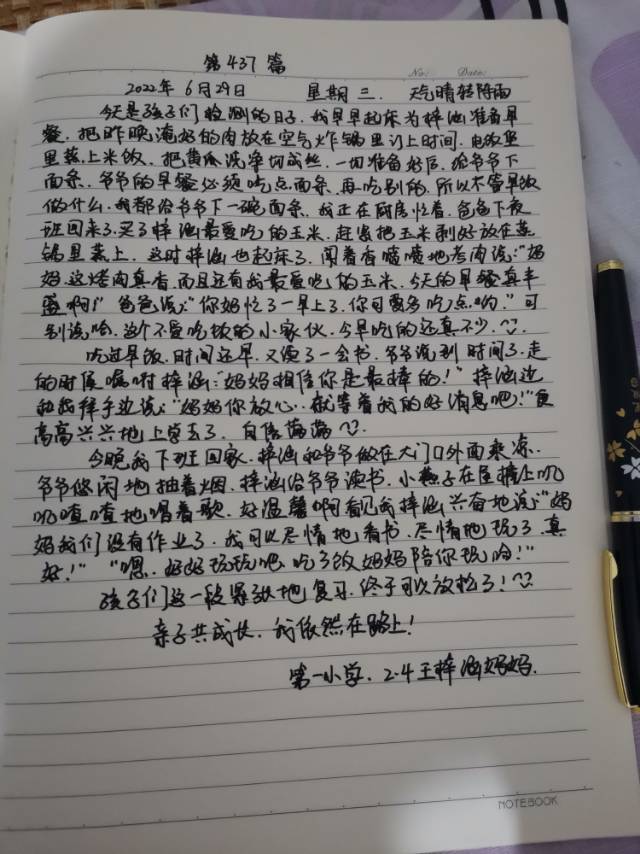 第437篇
No: Date:
2022年6月29日 星期三 天气晴转阵雨
今天是孩子们检测的日子,我早早起床为梓涵准备早
餐,把昨晚淹好的肉放在空气炸锅里订上时间,电饭煲
里蒸上米饭,把黄瓜洗净切成丝,一切准备好后,给爷爷下
面条,爷爷的早餐必须吃点面条,再吃别的,所以不管早饭
做什么,我都给爷爷下一碗面条,我正在厨房忙着,爸爸下夜
班回来了,买了梓涵最爱吃的玉米,赶紧把玉米剥好放在蒸
锅里蒸上,这时梓涵也起床了,闻着香喷喷地烤肉说:“妈
妈,这烤肉真香,而且还有我最爱吃的玉米,今天的早餐真丰
盛啊!”爸爸说:“你妈忙了一早上了,你可要多吃点哟。”可
别说哈,这个不爱吃饭的小家伙,今早吃的还真不少。
吃过早饭,时间还早,又读了一会书,爷爷说到时间了,走
的时候嘱咐梓涵:“妈妈相信你是最棒的!”梓涵边
和我拜手边说:“妈妈你放心,就等着我的好消息吧!”便
高高兴兴地上学去了,自信满满
今晚我下班回家,梓涵和爷爷做在大门口外面乘凉,
爷爷悠闲地抽着烟,梓涵给爷爷读书,小燕子在屋檐上叽
叽喳喳地唱着歌,好温馨啊,看见我梓涵兴奋地说:“妈
妈我们没有作业了,我可以尽情地看书,尽情地玩了,真
好!”“嗯,好好玩玩吧,吃了饭妈妈陪你玩哈!”
孩子们这一段紧张地复习,终于可以放松了!
亲子共成长,我依然在路上!
第一小学,2.4王梓涵妈妈.
NOTEBOOK